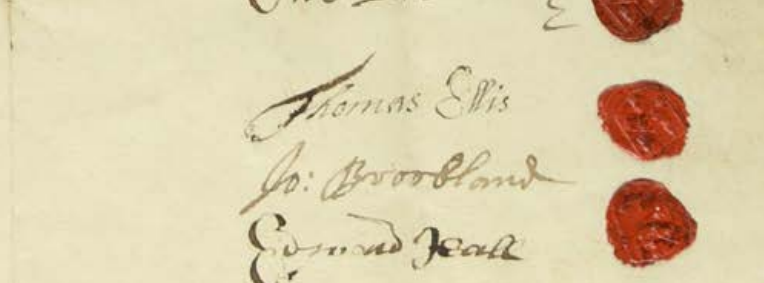 Thomas Ellis
Jo: Brookland
Edmund Hall